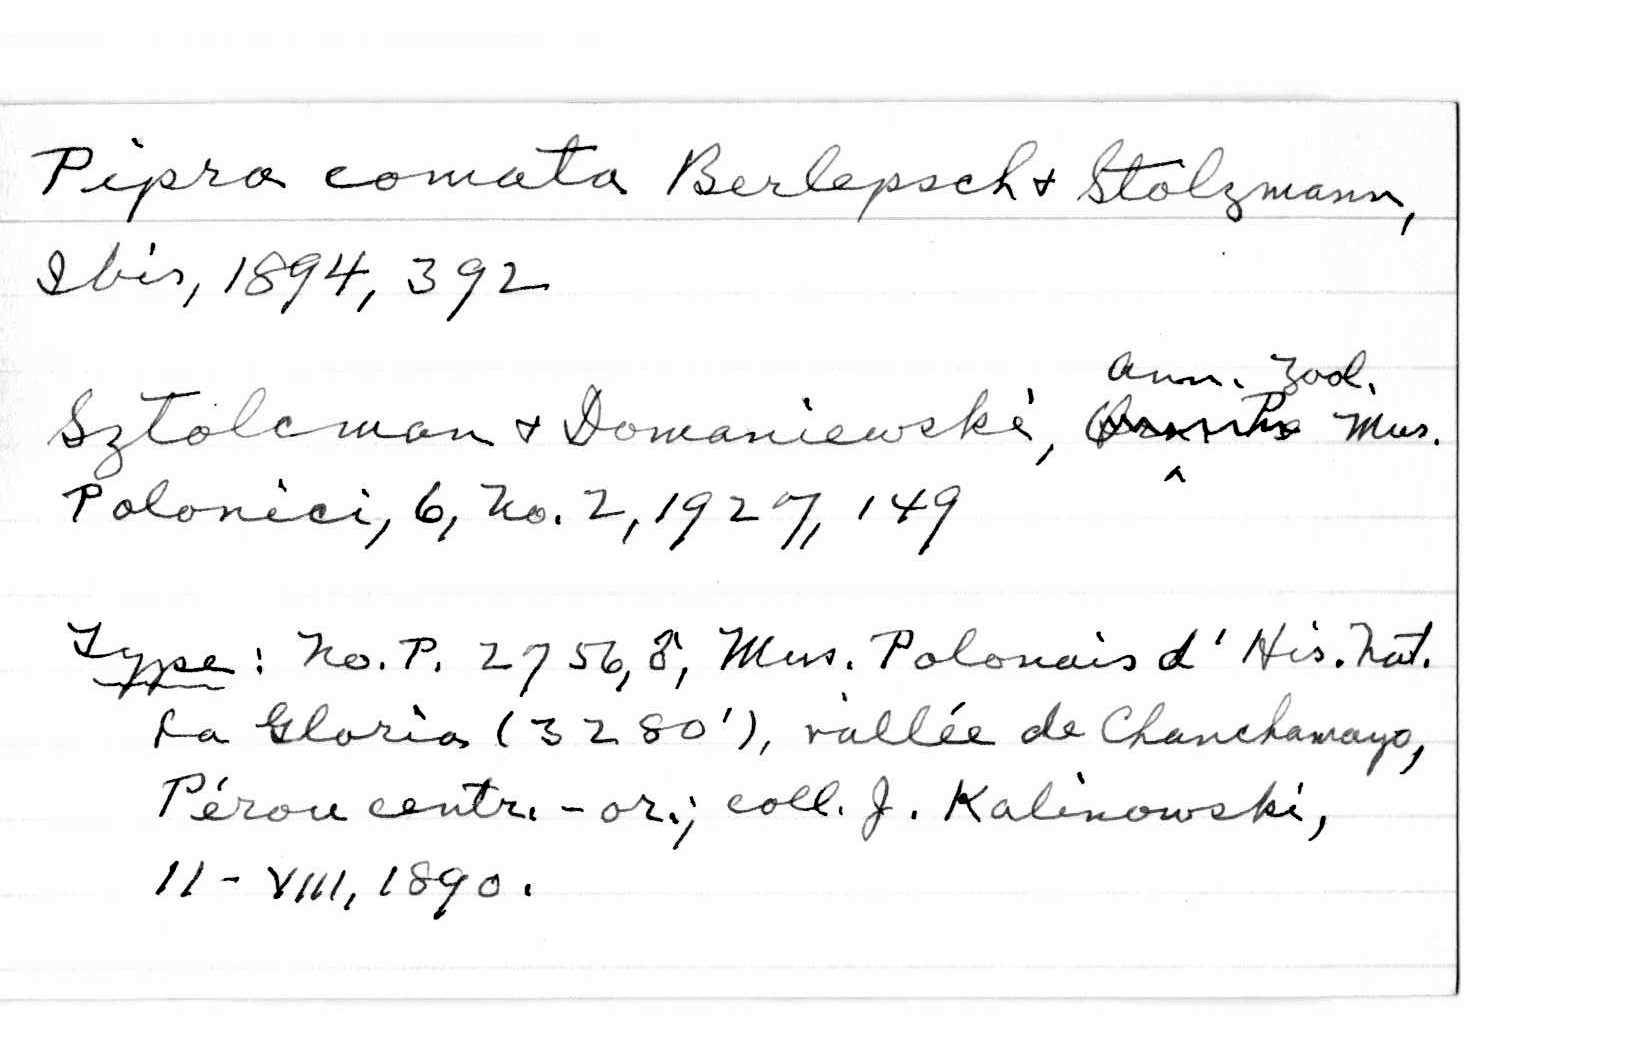 Pipra comata Berlepsch & Stolzmann,
Ibis, 1894, 392
Sztolcman & Domaniewski, Ann. Zool. Mus.
Polonici, 6, No. 2, 1927, 149
Type: No. P. 2756, ♂, Mus. Polonais d'His. Nat.
La Gloria (3280'), vallée de Chanchamayo,
Pérou centr.-or.; coll. J. Kalinowski,
11-VIII, 1890.